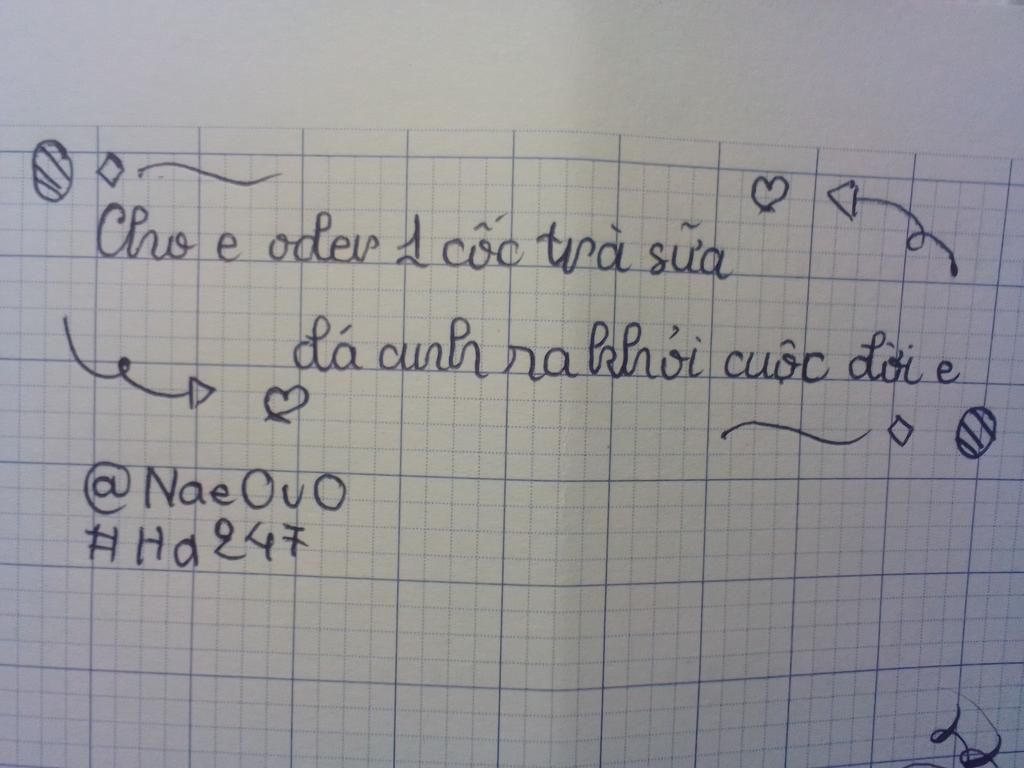 Cho e oder 1 cốc trà sữa
đá anh ra khỏi cuộc đời e
@NaeOvO
#Hd247